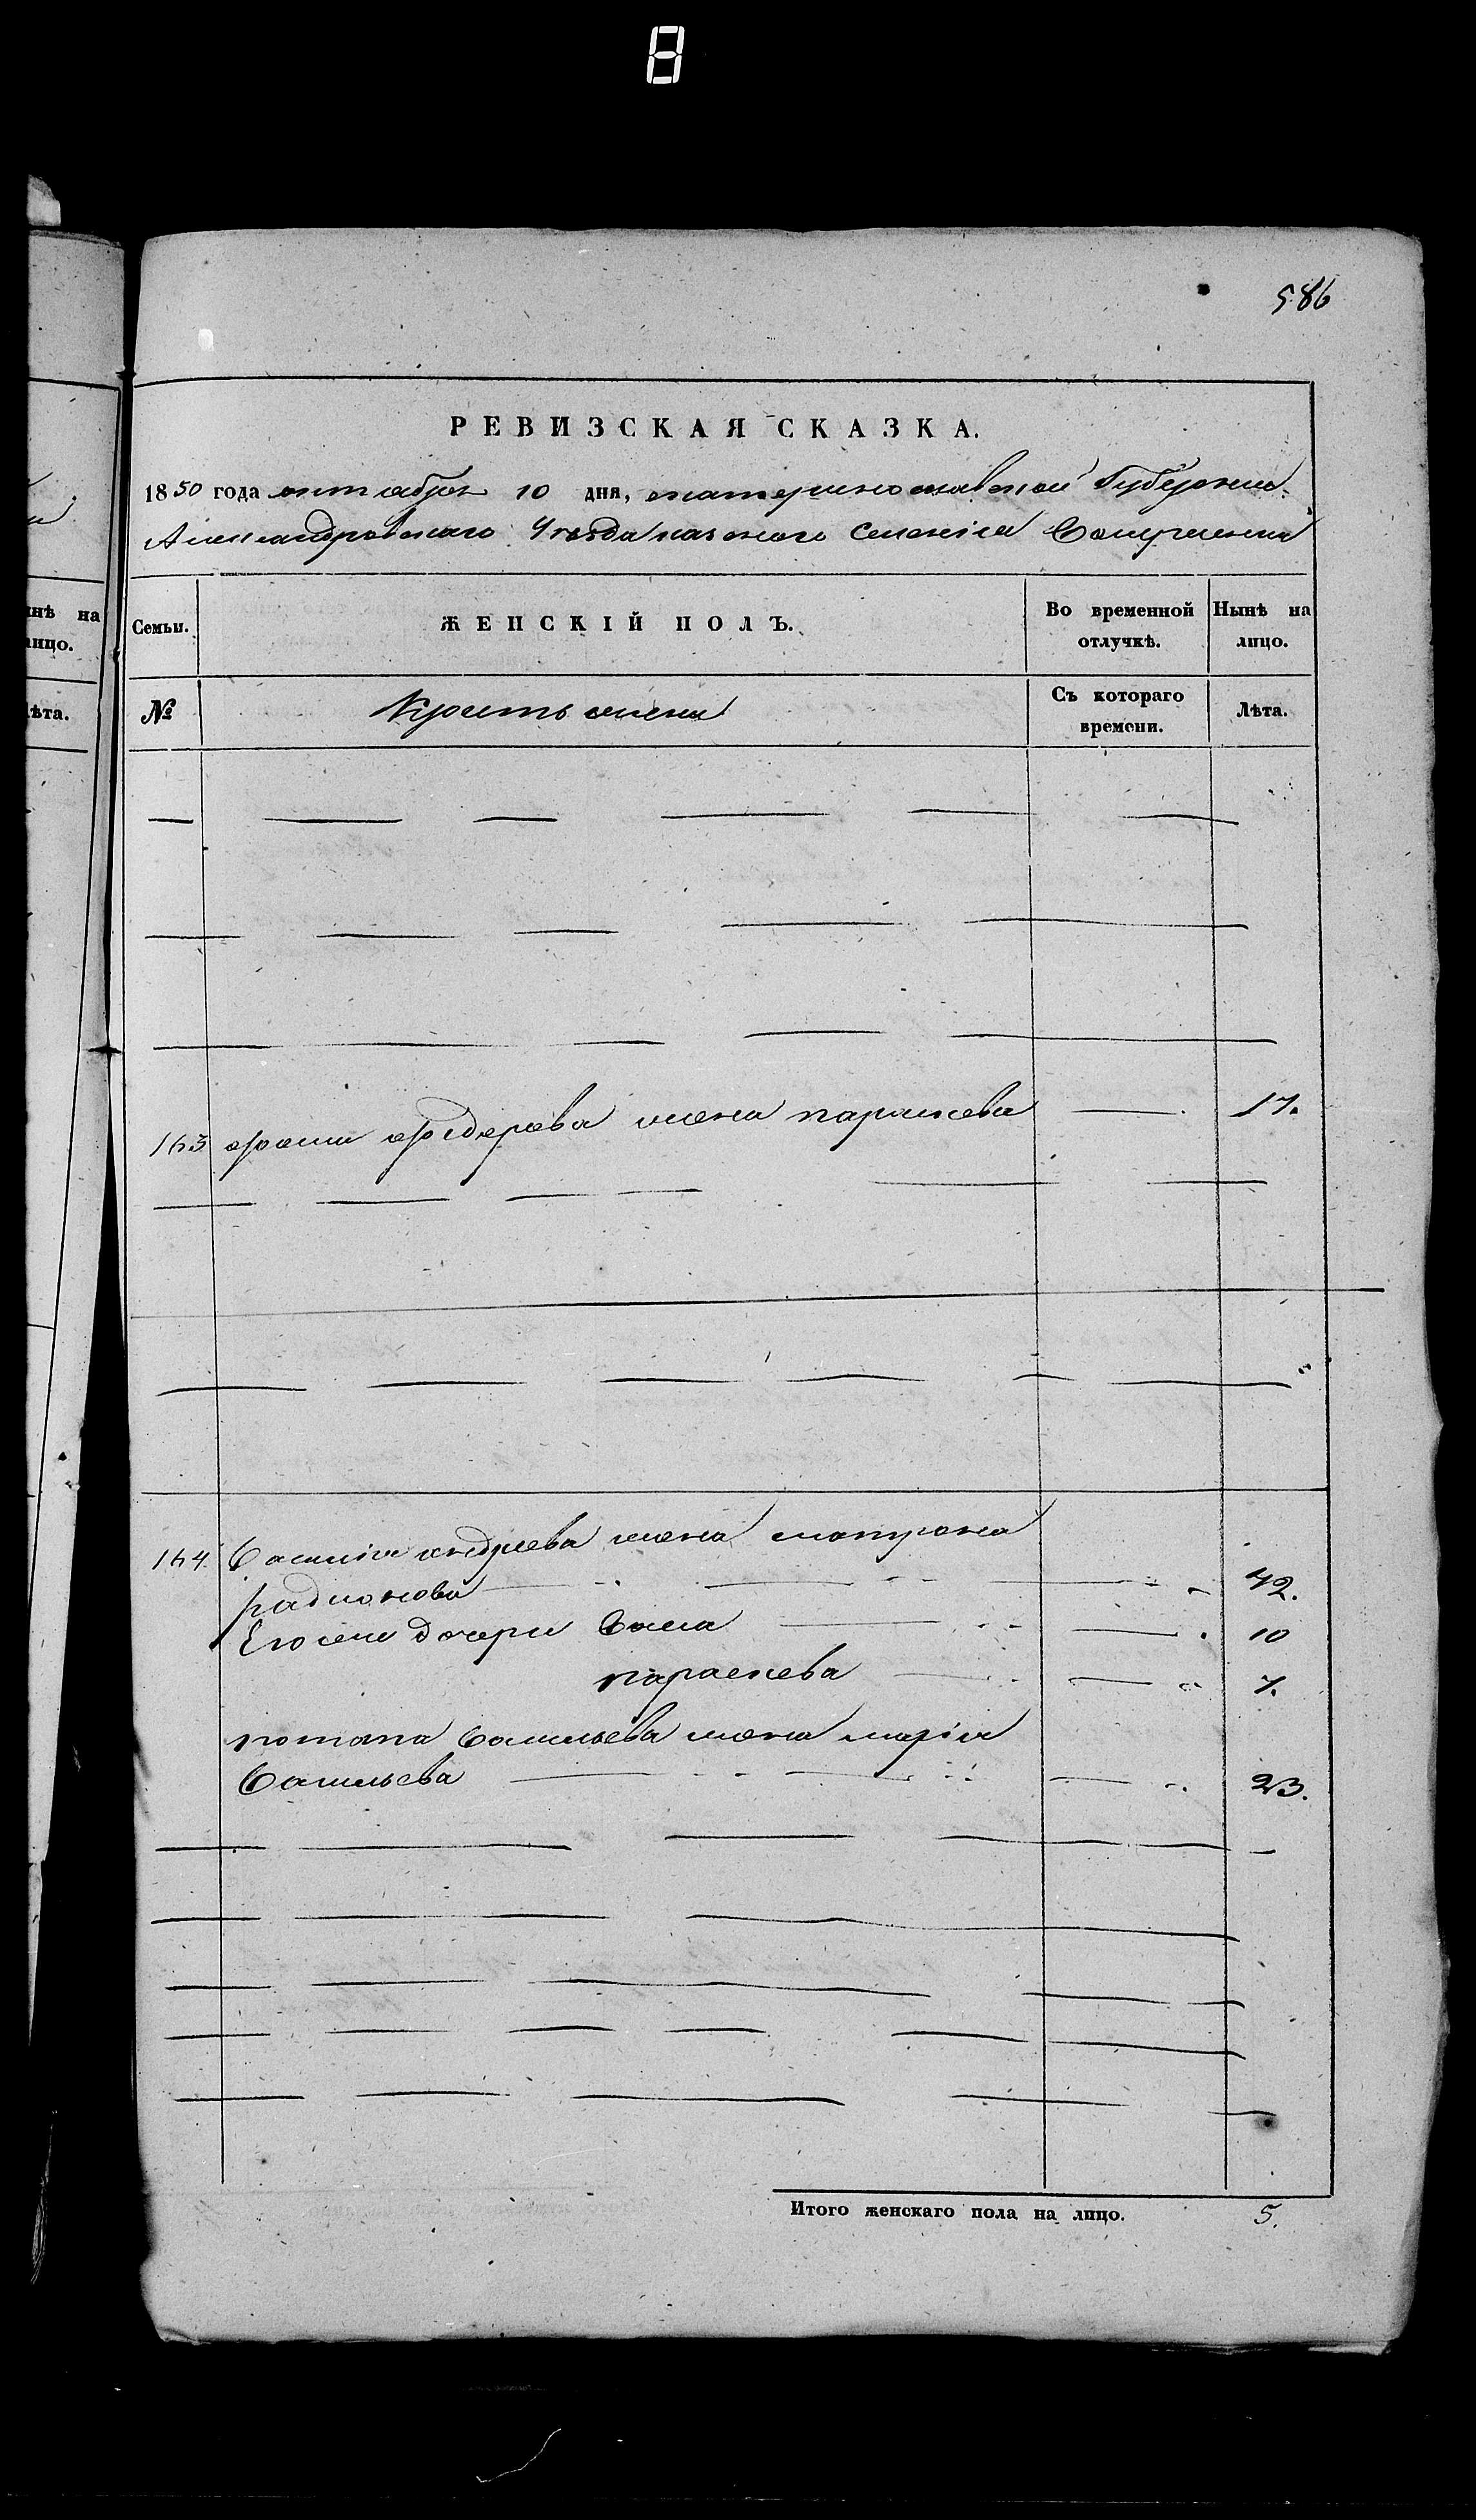 8
586
РЕВИЗСКАЯ СКАЗКА.
1850 года октября 10 дня, екатеринославской Губернии
Александровскаго Уезда казенаго Селенія
Семьи.
ЖЕНСКІЙ ПОЛЪ.
Во временной отлучкѣ.
Нынѣ на лицо.
№
Крестьянки
Съ котораго времени.
Лѣта.
нѣ на
лицо.
ѣта.
163 федерова жена параскева 17.
164 Василія андреева жена матрона
радионова 42.
Его же дочери Васса 10
параскева 7.
потапа васильева жена марія
Васильева 23.
Итого женскаго пола на лицо. 5.